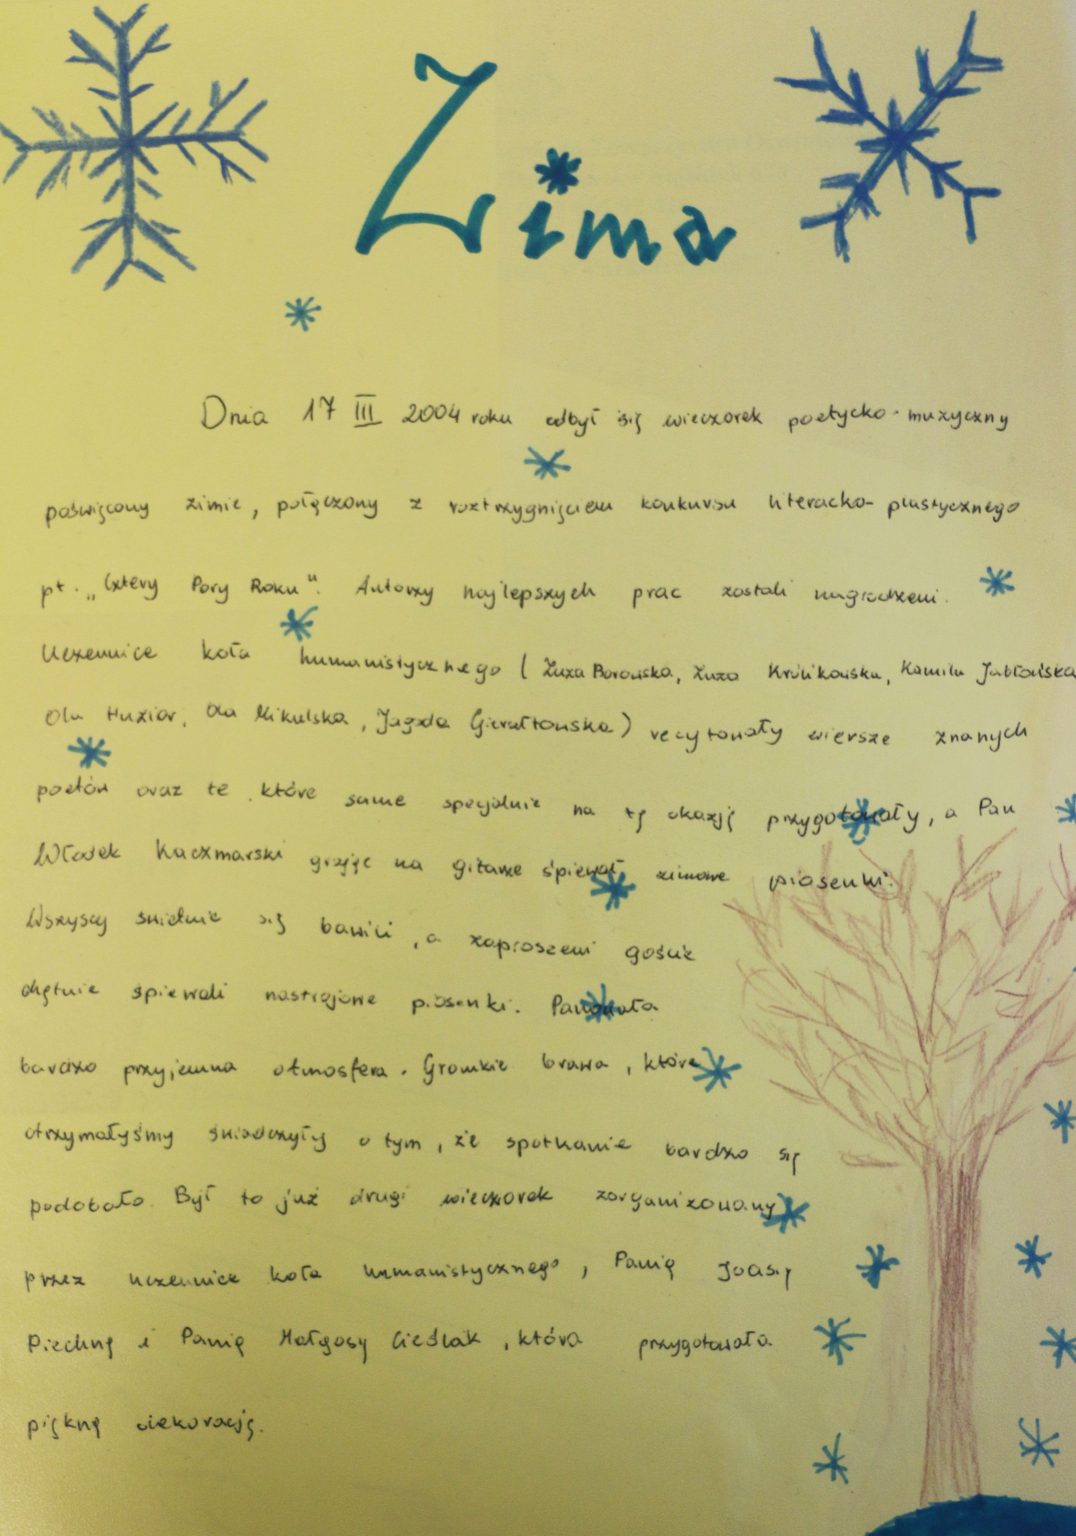 Zima
Dnia 17 III 2004 roku odbył się wieczorek poetycko-muzyczny
poświęcony zimie, połączony z roztrzygnięciem konkursu literacko-plastycznego
pt. „Cztery Pory Roku". Autorzy najlepszych prac zostali nagrodzeni.
Uczennice koła humanistycznego (Zuza Borowska, Zuza Królikowska, Kamila Jabłońska
Ola Huzior, Ola Mikulska, Jagoda Gierałtowska) recytowały wiersze znanych
poetów oraz te które same specjalnie na tę okazję przygotowały, a Pan
Włodek Kaczmarski grając na gitarze śpiewał zimowe piosenki.
Wszyscy świetnie się bawili, a zaproszeni goście
chętnie śpiewali nastrojowe piosenki. Panowała
bardzo przyjemna atmosfera. Gromkie brawa, które
otrzymałyśmy świadczyły o tym, że spotkanie bardzo się
podobało. Był to już drugi wieczorek zorganizowany
przez uczennice koła humanistycznego, Panią Joasię
Piechnę i Panią Małgosy Cieślak, która przygotowała
piękną dekorację.